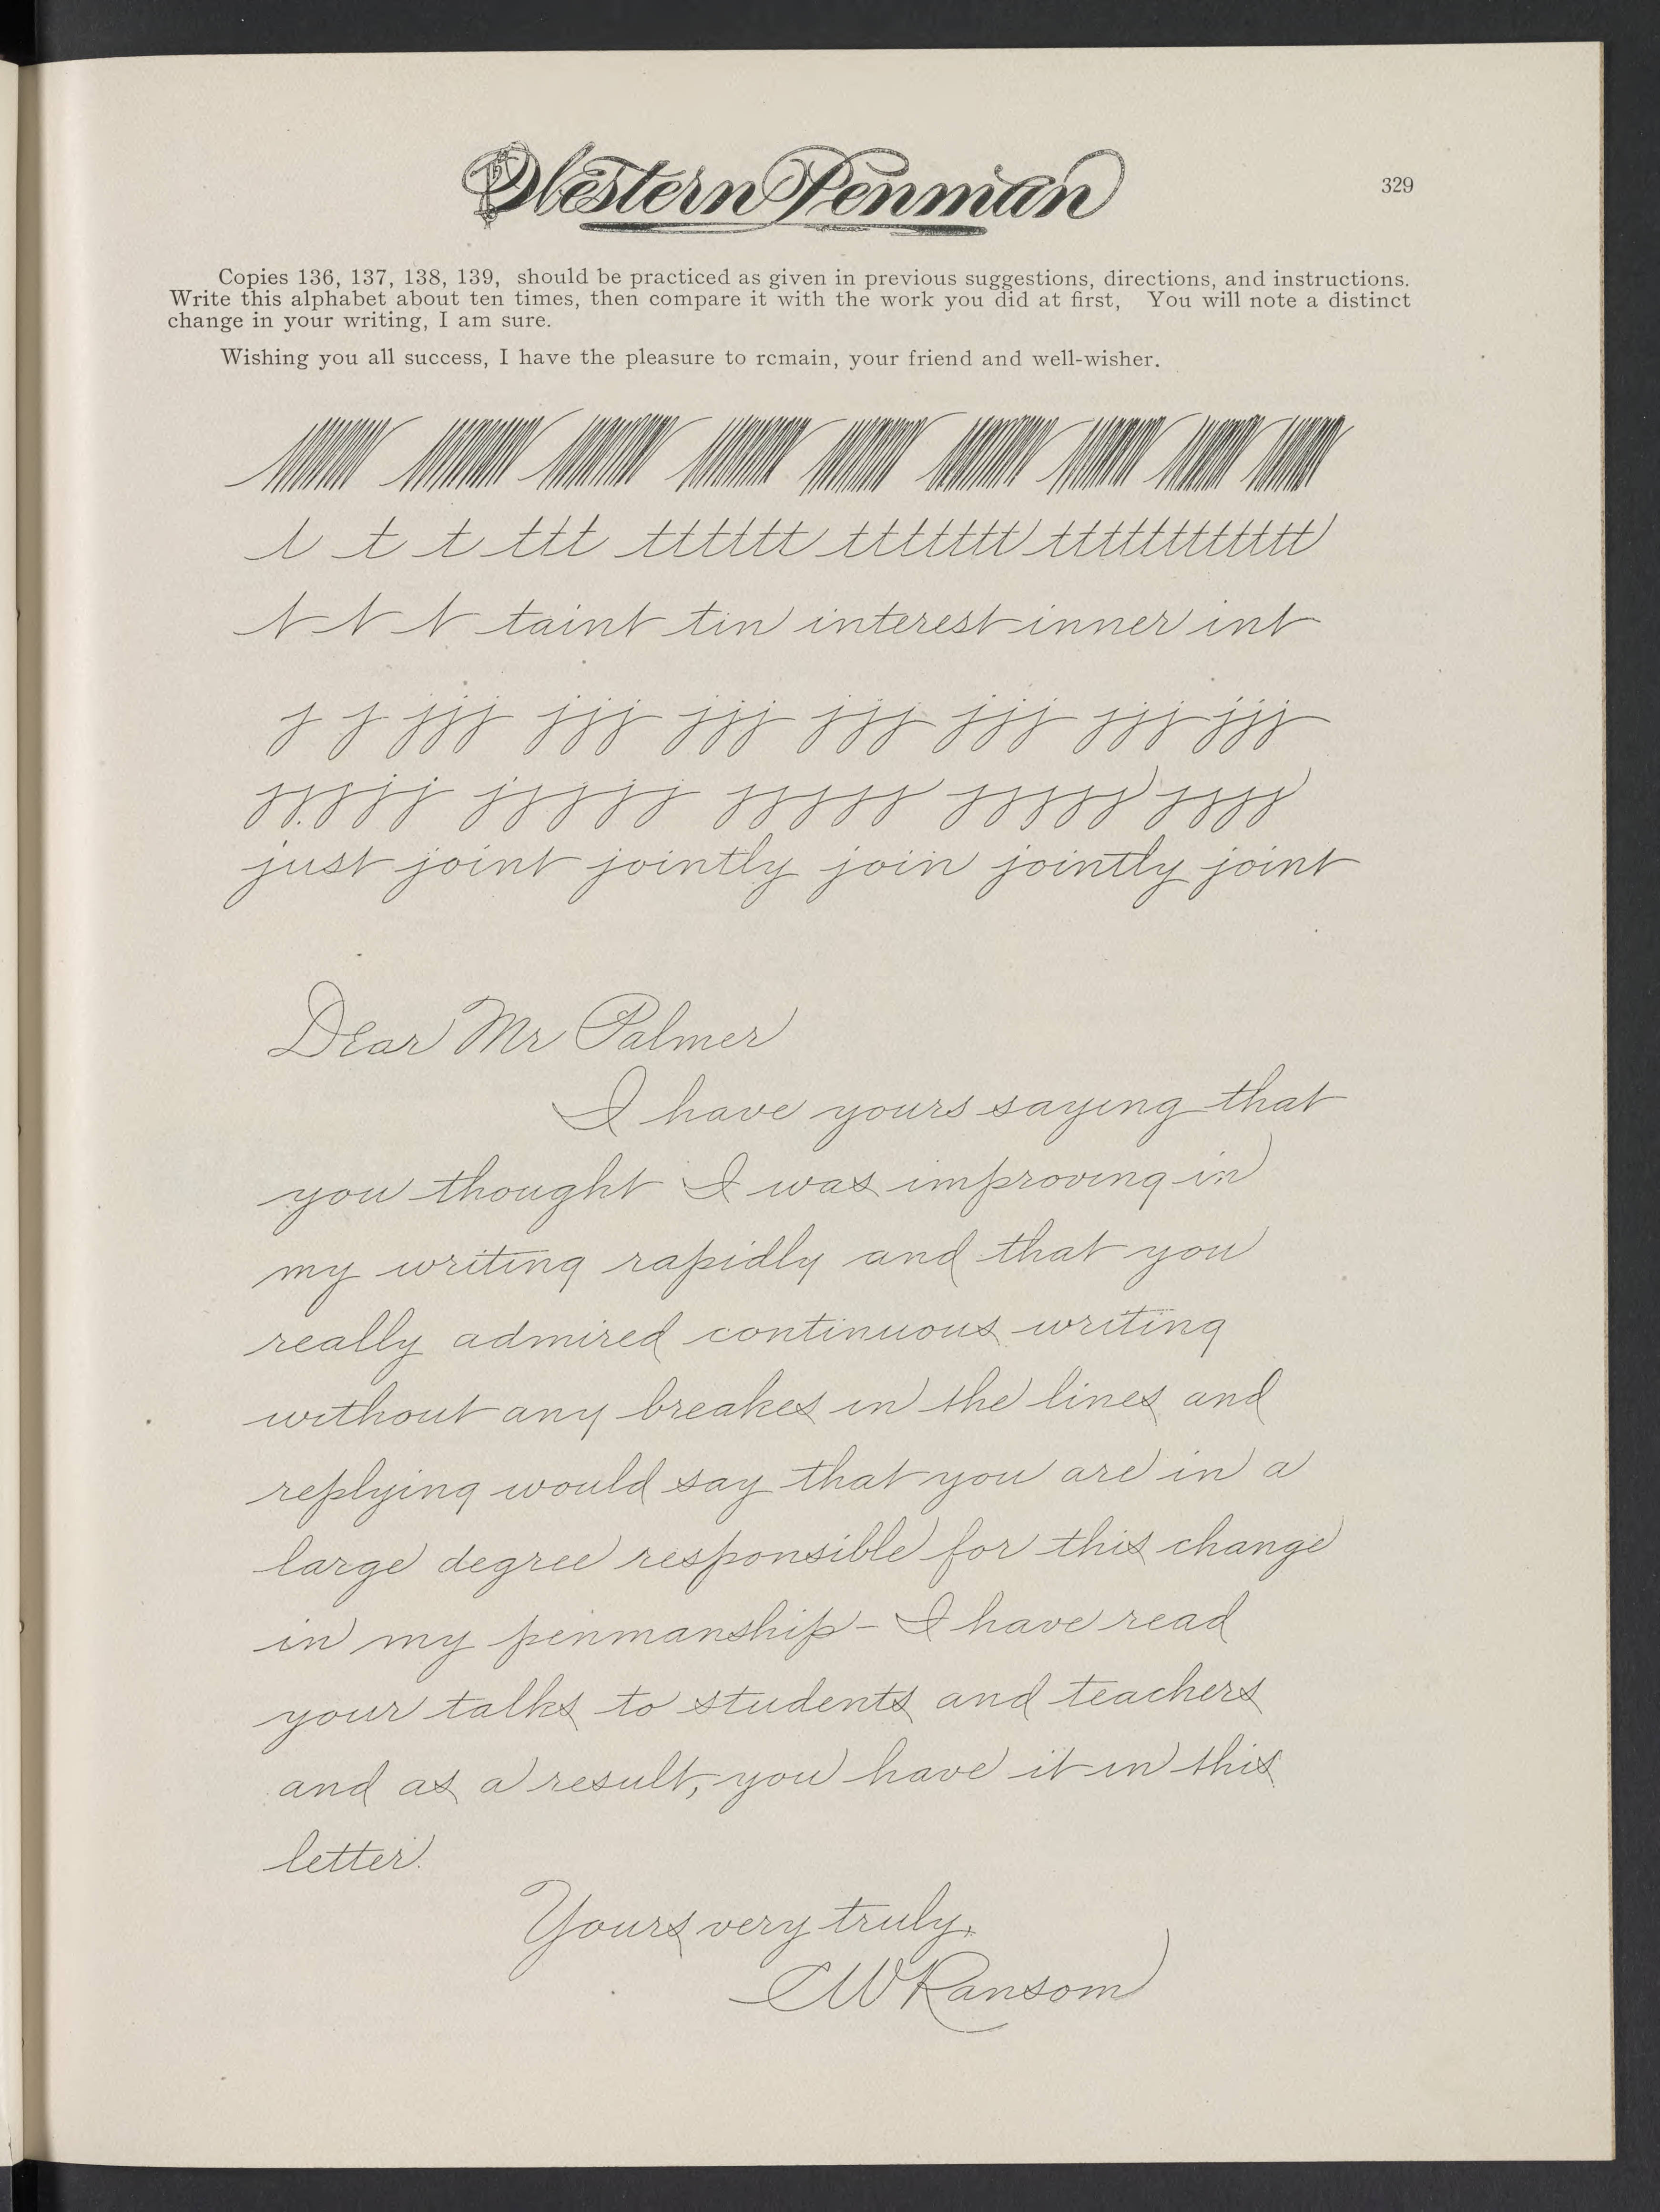 Western Penman
329
Copies 136, 137, 138, 139, should be practiced as given in previous suggestions, directions, and instructions.
Write this alphabet about ten times, then compare it with the work you did at first, You will note a distinct
change in your writing, I am sure.
Wishing you all success, I have the pleasure to rcmain, your friend and well-wisher.
t t t ttt tttttt ttttttt ttttttttttt
t t t taint tin interest inner int
j j jjj jjj jjj jjj jjj jjj jjj
jjjjj jjjjj jjjjj jjjjj jjjj
just joint jointly join jointly joint
Dear Mr Palmer
I have yours saying that
you thought I was improving in
my writing rapidly and that you
really admired continuous writing
without any breakes in the lines and
replying would say that you are in a
large degree responsible for this change
in my penmanship - I have read
your talks to students and teachers
and as a result, you have it in this
letter.
Yours very truly,
C W Ransom